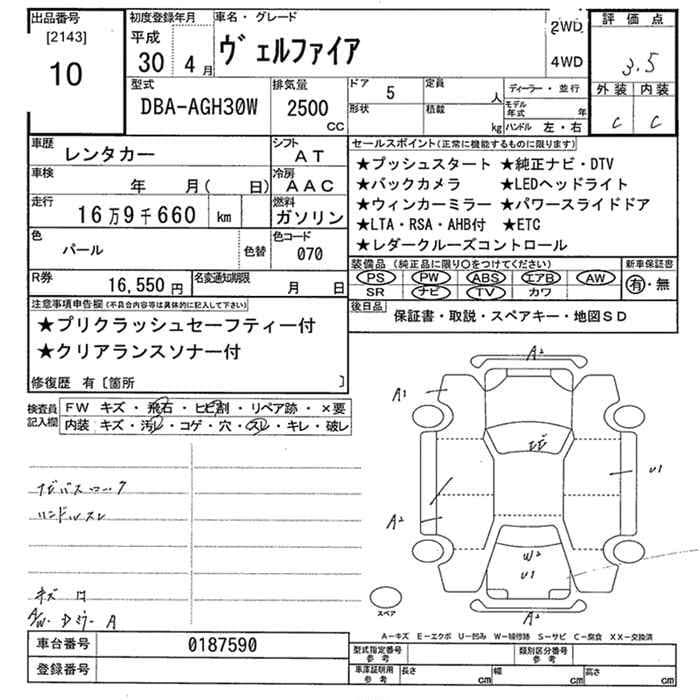 出品番号
[2143]
10
初度登録年月
平成
30 4月
車名・グレード
ヴェルファイア
2WD
4WD
評価点
3.5
外装 内装
C C
型式
DBA-AGH30W
排気量
2500
CC
ドア 5
形状
定員 人
積載 kg
ディーラー・並行
モデル年式 年
ハンドル 左・右
車歴 レンタカー
シフト AT
車検 年 月( 日)
冷房 AAC
走行 16万9千660 km
燃料 ガソリン
色 パール 色替
色コード 070
R券 16,550円
名変通知期限 月 日
セールスポイント(正常に機能するものに限ります)
★プッシュスタート ★純正ナビ・DTV
★バックカメラ ★LEDヘッドライト
★ウィンカーミラー ★パワースライドドア
★LTA・RSA・AHB付 ★ETC
★レダークルーズコントロール
装備品(純正品に限り○をつけてください)
PS PW ABS エアB AW
SR ナビ TV カワ
新車保証書
有・無
後日品 保証書・取説・スペアキー・地図SD
注意事項申告欄(不具合内容等は具体的に記入して下さい)
★プリクラッシュセーフティー付
★クリアランスソナー付
修復歴 有〔箇所 〕
検査員記入欄
FW キズ・飛石・ヒビ割・リペア跡・×要
内装 キズ・汚レ・コゲ・穴・スレ・キレ・破レ
ハンドルスレ
A2
A1
U1
A2
W2
U1
A2
スペア
A-キズ E-エクボ U-凹み W-補修跡 S-サビ C-腐食 XX-交換済
車台番号 0187590
登録番号
型式指定番号 参考
類別区分番号 参考
車庫証明用 参考
長さ cm 幅 cm 高さ cm